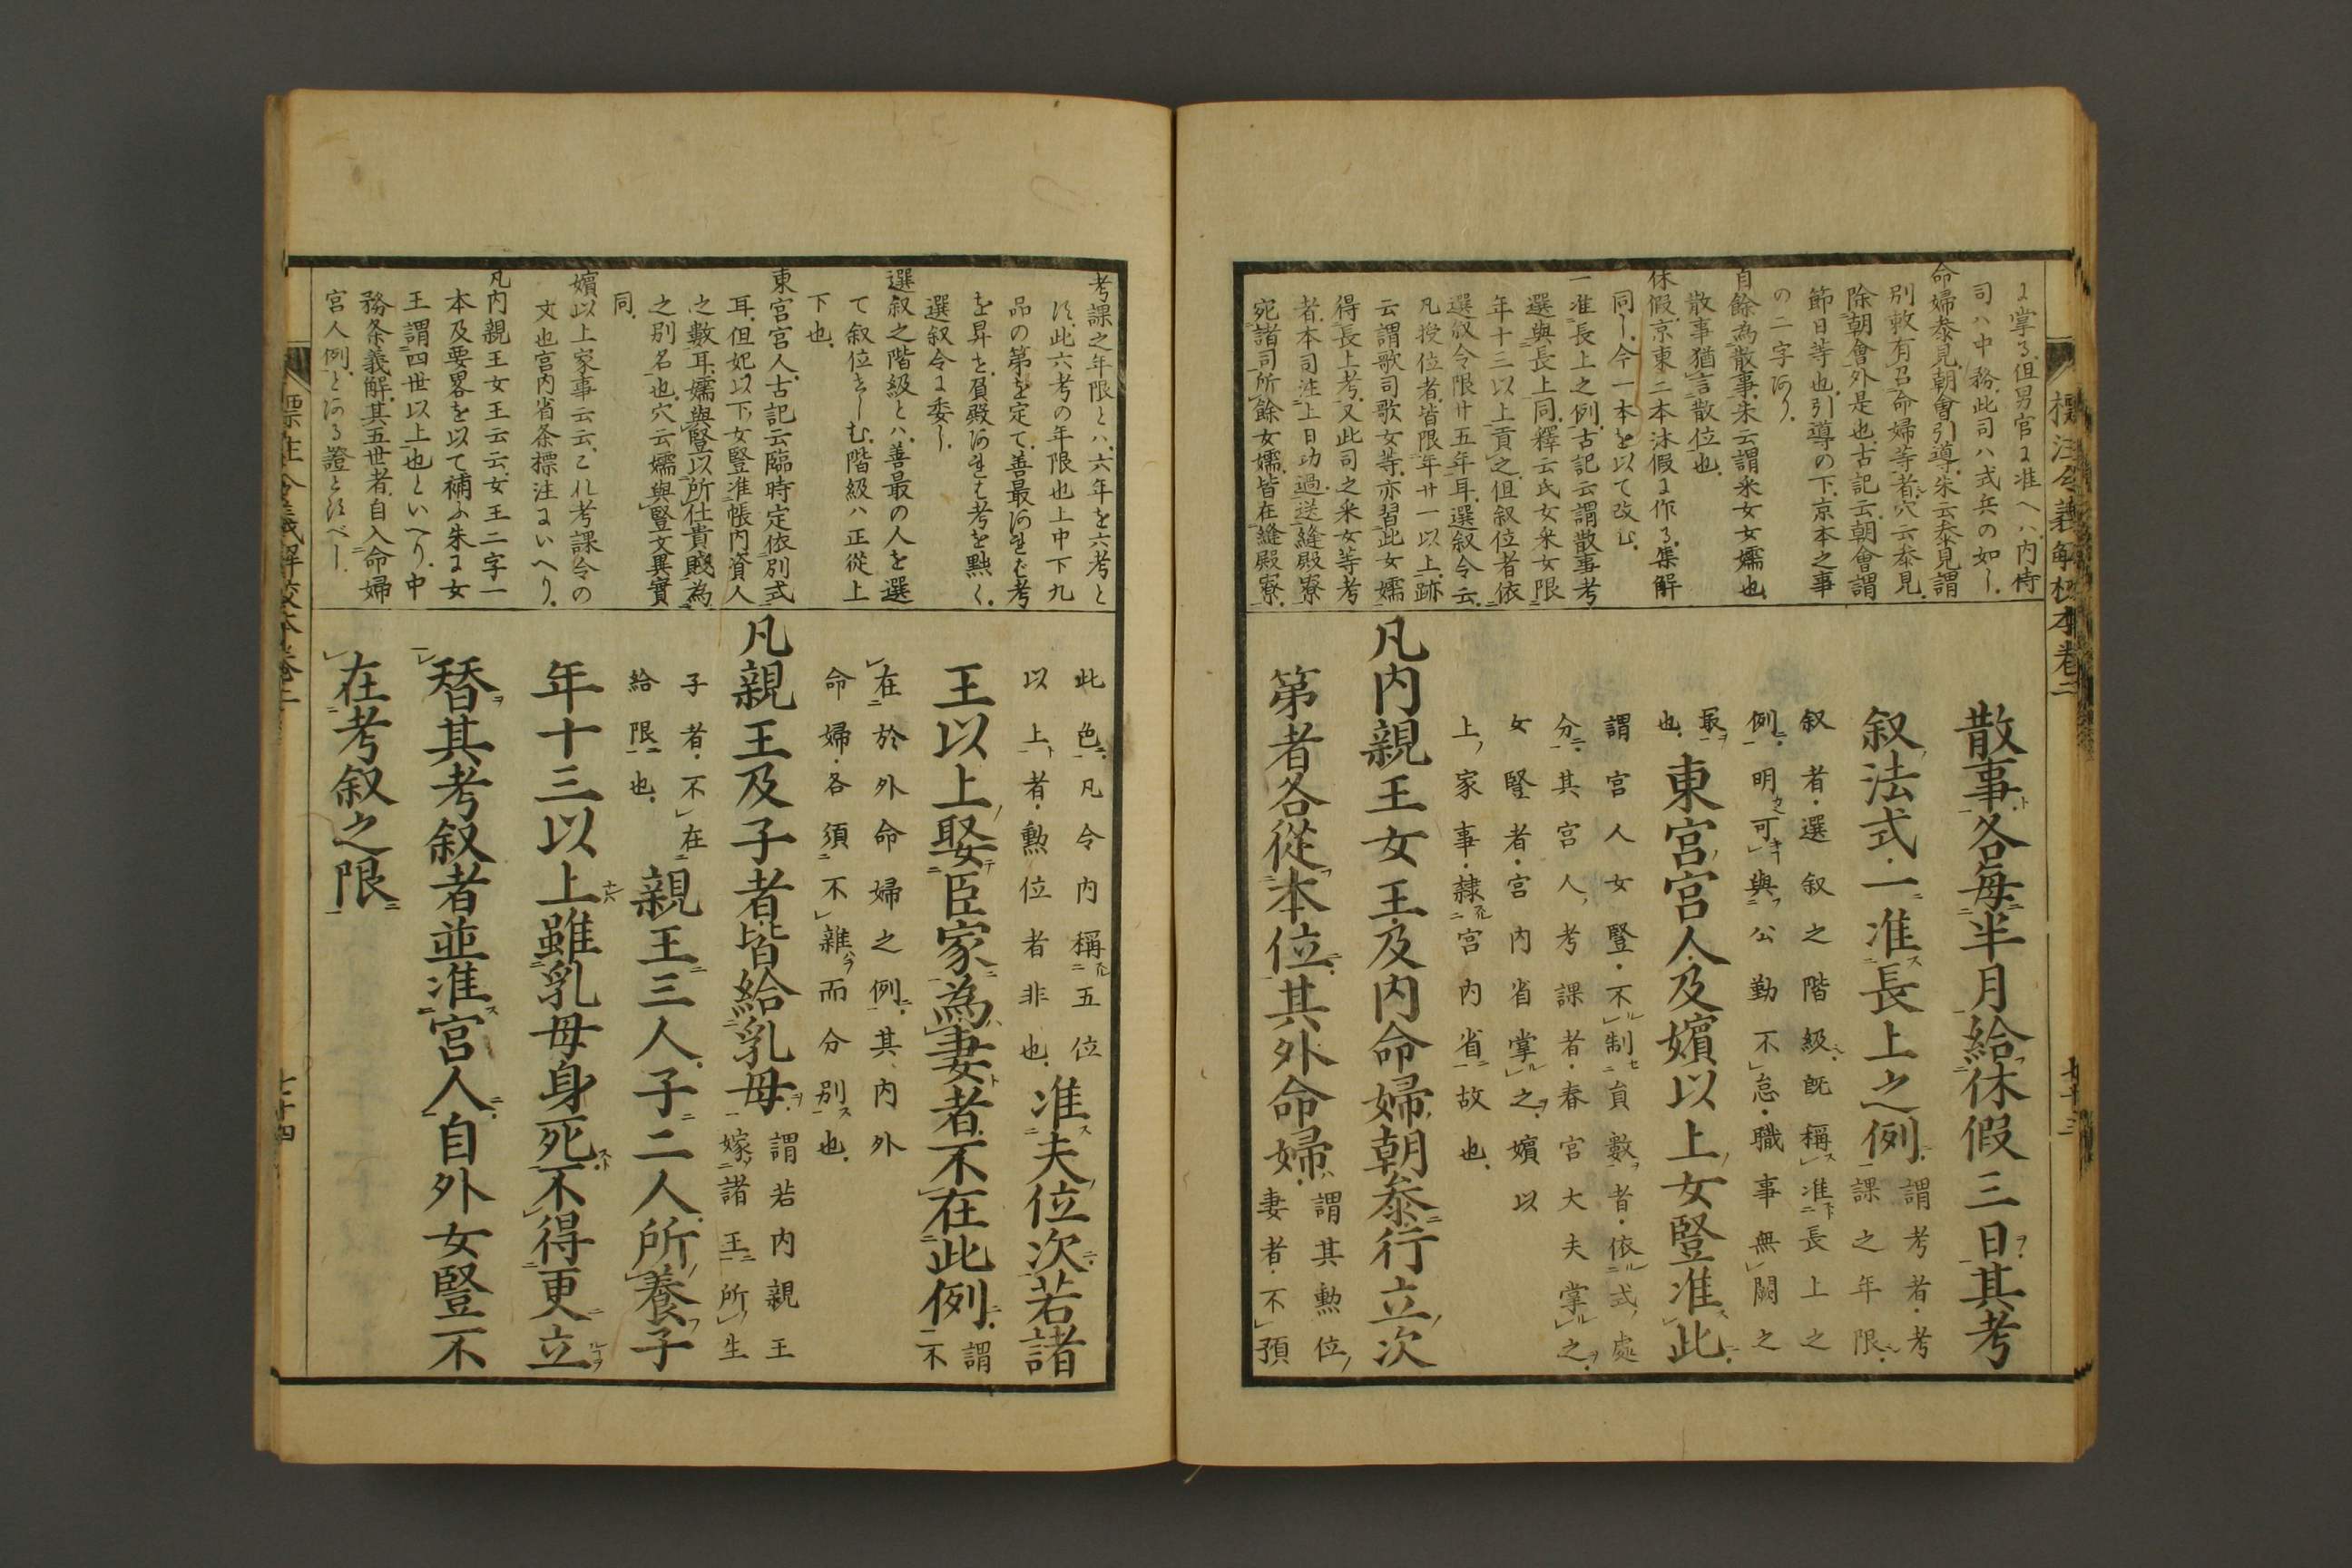 標注令義解校本巻二
に掌る、但男官に准へハ、内侍
司ハ中務、此司ハ式兵の如し、
命婦叅見朝會引導、朱云叅見謂
別敕有召命婦等者、穴云叅見
除朝會外是也、古記云、朝會謂
節日等也、引導の下、京本之事
の二字あり、
自餘為散事、朱云謂采女女孺也
散事猶言散位也、
休假、京東二本沐假に作る、集解
同し、今一本を以て改む、
一准長上之例、古記云謂散事考
選與長上同、釋云氏女采女限
年十三以上貢之、但叙位者依
選叙令限廿五年耳、選叙令云、
凡授位者、皆限年廿一以上、跡
云謂歌司歌女等、亦習此女孺
得長上考、又此司之采女等考
者、本司注上日功過送縫殿寮
宛諸司所餘女孺、皆在縫殿寮、
散事各毎半月給休假三日其考
叙法式一准長上之例謂考者考
課之年限
叙者選叙之階級既稱准長上之
例明可與公勤不怠職事無闕之
最
也東宮宮人及嬪以上女豎准此
謂宮人女豎不制員數者依式處
分其宮人考課者春宮大夫掌之
女豎者宮内省掌之嬪以
上家事隷宮内省故也
凡内親王女王及内命婦朝叅行立次
第者各從本位其外命婦謂其勲位
妻者不預
考課之年限とハ、六年を六考と
す、此六考の年限也上中下九
品の第を定て、善最あれば考
を昇せ、負殿あれは考を黜く、
選叙令に委し、
選叙之階級とハ、善最の人を選
て叙位せしむ、階級ハ正從上
下也、
東宮宮人、古記云臨時定依別式
耳、但妃以下、女豎准帳内資人
之數耳、孺與豎以所仕貴賤為
之別名也、穴云孺與豎文異實
同、
嬪以上家事云云、これ考課令の
文也宮内省条標注にいへり、
凡内親王女王云云、女王二字一
本及要畧を以て補ふ朱に女
王謂四世以上也といへり、中
務条義解、其五世者、自入命婦
宮人例、とある證とすべし、
此色凡令内稱五位
以上者勲位者非也准夫位次若諸
王以上娶臣家為妻者不在此例謂
不
在於外命婦之例其内外
命婦各須不雜而分別也
凡親王及子者皆給乳母謂若内親王
嫁諸王所生
子者不在
給限也親王三人子二人所養子
年十三以上雖乳母身死不得更立
替其考叙者並准宮人自外女豎不
在考叙之限
七十四